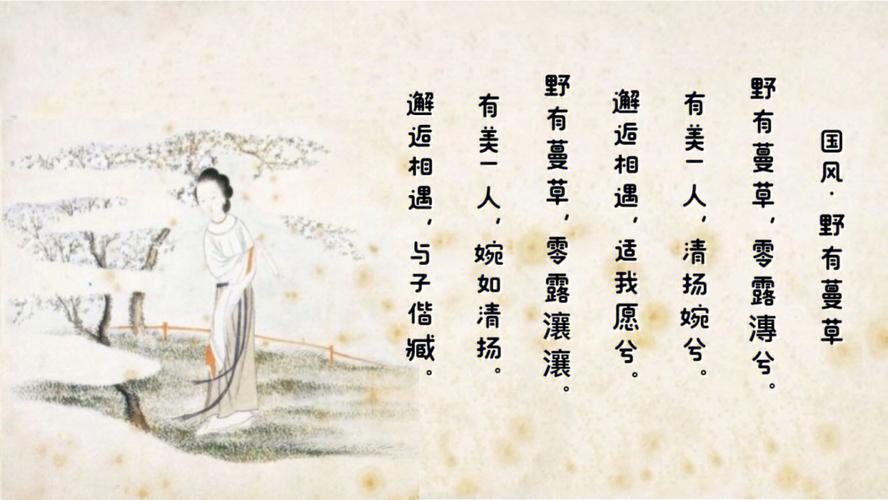 国风·野有蔓草
野有蔓草，零露漙兮。
有美一人，清扬婉兮。
邂逅相遇，适我愿兮。
野有蔓草，零露瀼瀼。
有美一人，婉如清扬。
邂逅相遇，与子偕臧。